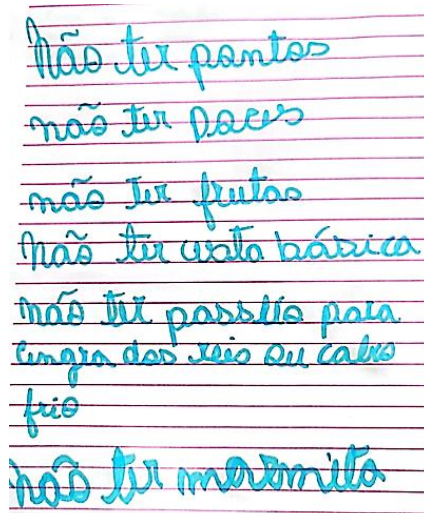 Não ter pontos
não ter Doces
não Ter frutas
Não ter cesta básica
não ter passeio para
Angra dos reis ou cabo
frio
não ter marmita